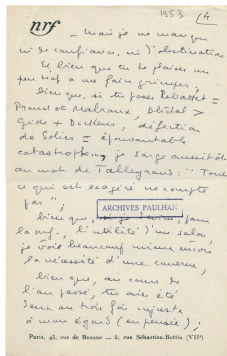 nrf
1953 (4
— mais je ne manque
ni de confiance, ni d'obstination
Et bien que tu te plaises un
peu à me faire grimper,
bien que, si tu poses Rebatet =
Proust et Malraux, Dhôtel >
Gide + Dickens, défection
de Solier = épouvantable
catastrophe..., je songe aussitôt
au mot de Talleyrand : "Tout
ce qui est exagéré ne compte
pas",
bien que, si je dans
la nrf, l'utilité d'un salon,
je voie beaucoup mieux encore
la nécessité d'une caverne,
bien que, au cours de
l'an passé, tu aies été
deux ou trois fois injuste
à mon égard (en pensée),
ARCHIVES PAULHAN
Paris, 43, rue de Beaune — 5, rue Sébastien-Bottin (VIIe)